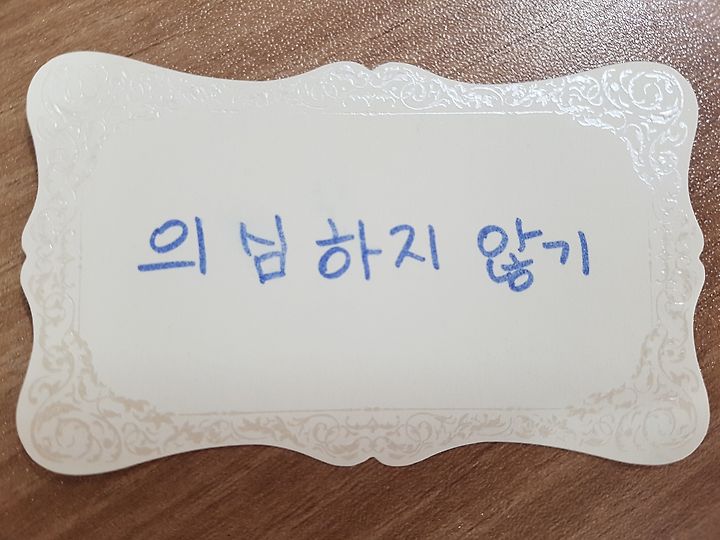 의심하지 않기